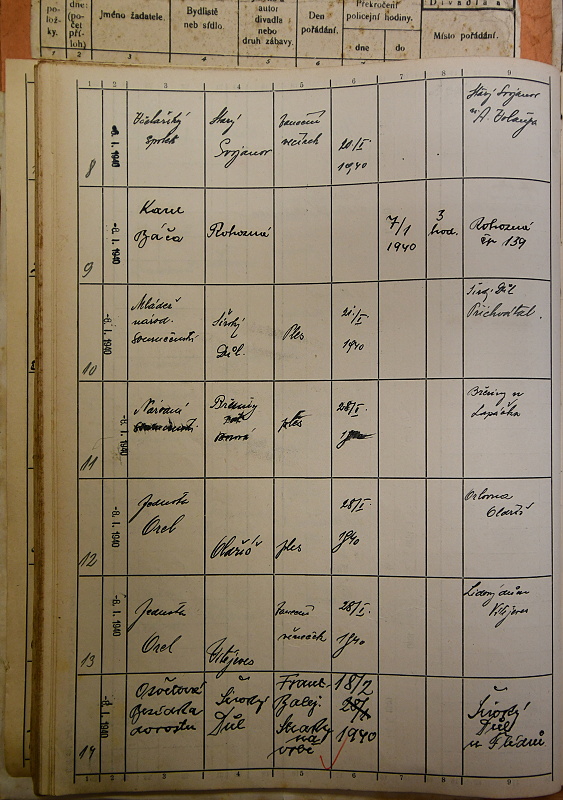 po-
lož-
ky.
dne:
(po-
čet
pří-
loh)
Jméno žadatele.
Bydliště
neb sídlo.
autor
divadla
nebo
druh zábavy.
Den
pořádání.
Překročení
policejní hodiny.
dne
do
Místo pořádání.
1 2 3 4 5 6 7 8 9
8
-8. I. 1940
Včelařský
spolek
Starý
Svojanov
taneční
20/I.
1940
Starý Svojanov
9
-8. I. 1940
Karel
Báča
Rohozná
7/1
1940
3
hod.
Rohozná
čp 139
10
-8. I. 1940
Mládež
národ.
souručenství
Široký
Důl.
Ples
21/I.
1940
Důl
11
-8. I. 1940
Národní
souručenství
Březiny
ples
28/I.
Březiny u
12
-8. I. 1940
Jednota
Orel
ples
28/I.
1940
Orlovna
13
-8. I. 1940
Jednota
Orel
Vítějeves
taneční
věneček
28/I.
1940
Lidový dům
Vítějeves
14
-8. I. 1940
Osvětová
Besídka
dorostu
Široký
Důl
Frant.
Balej
Straky
na
vrbě
18/2
1940
Široký
Důl
u
1 2 3 4 5 6 7 8 9